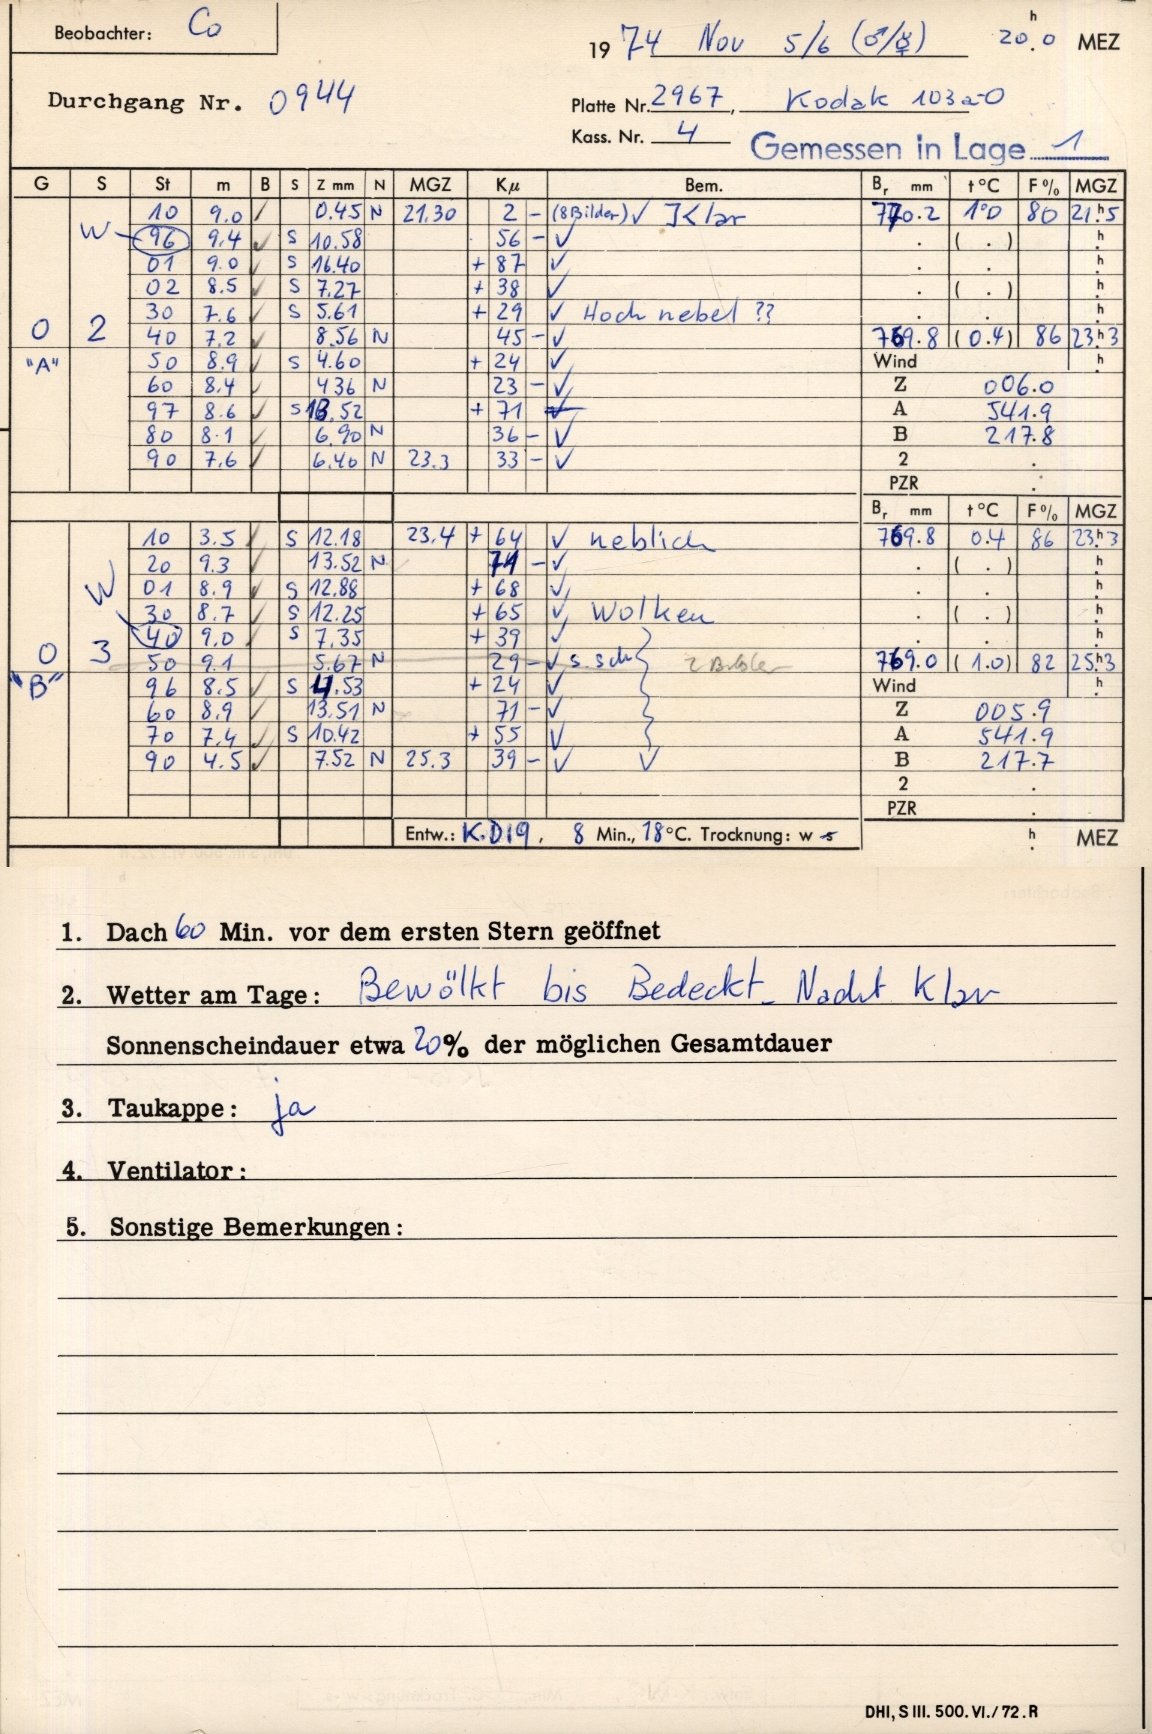 Beobachter: Co
1974 Nov 5/6 (♂/☿) 20.0 h MEZ
Durchgang Nr. 0944
Platte Nr. 2967, Kodak 103a-O
Kass. Nr. 4
Gemessen in Lage 1
G S St m B S Z mm N MGZ Kμ Bem. Br mm t°C F% MGZ
10 9.0 ✓ 0.45 N 21.30 2 - (8 Bilder) ✓ Klar 770.2 1.0 80 21.h5
W 96 9.4 ✓ S 10.58 56 - ✓ . ( . ) h
01 9.0 ✓ S 16.40 + 87 ✓ . . h
02 8.5 ✓ S 7.27 + 38 ✓ . ( . ) h
30 7.6 ✓ S 5.61 + 29 ✓ Hochnebel ?? . . h
0 2 40 7.2 ✓ 8.56 N 45 - ✓ 769.8 (0.4) 86 23.h3
"A" 50 8.9 ✓ S 4.60 + 24 ✓ Wind h
60 8.4 ✓ 4.36 N 23 - ✓ Z 006.0
97 8.6 ✓ S 13.52 + 71 ✓ A 541.9
80 8.1 ✓ 6.90 N 36 - ✓ B 217.8
90 7.6 ✓ 6.40 N 23.3 33 - ✓ 2 .
PZR .
Br mm t°C F% MGZ
10 3.5 ✓ S 12.18 23.4 + 64 ✓ neblich 769.8 0.4 86 23.h3
20 9.3 ✓ 13.52 N 71 - ✓ . ( . ) h
W 01 8.9 ✓ S 12.88 + 68 ✓ . . h
30 8.7 ✓ S 12.25 + 65 ✓ Wolken . ( . ) h
40 9.0 ✓ S 7.35 + 39 ✓ . . h
0 3 50 9.1 5.67 N 29 - ✓ s. sch 2 Bilder 769.0 (1.0) 82 25.h3
"B" 96 8.5 ✓ S 4.53 + 24 ✓ Wind h
60 8.9 ✓ 13.51 N 71 - ✓ Z 005.9
70 7.4 ✓ S 10.42 + 55 ✓ A 541.9
90 4.5 ✓ 7.52 N 25.3 39 - ✓ B 217.7
2 .
PZR .
Entw.: K.D19, 8 Min., 18°C. Trocknung: w s h MEZ
1. Dach 60 Min. vor dem ersten Stern geöffnet
2. Wetter am Tage: Bewölkt bis Bedeckt - Nacht Klar
Sonnenscheindauer etwa 20% der möglichen Gesamtdauer
3. Taukappe: ja
4. Ventilator:
5. Sonstige Bemerkungen:
DHI, S III. 500. VI./72. R